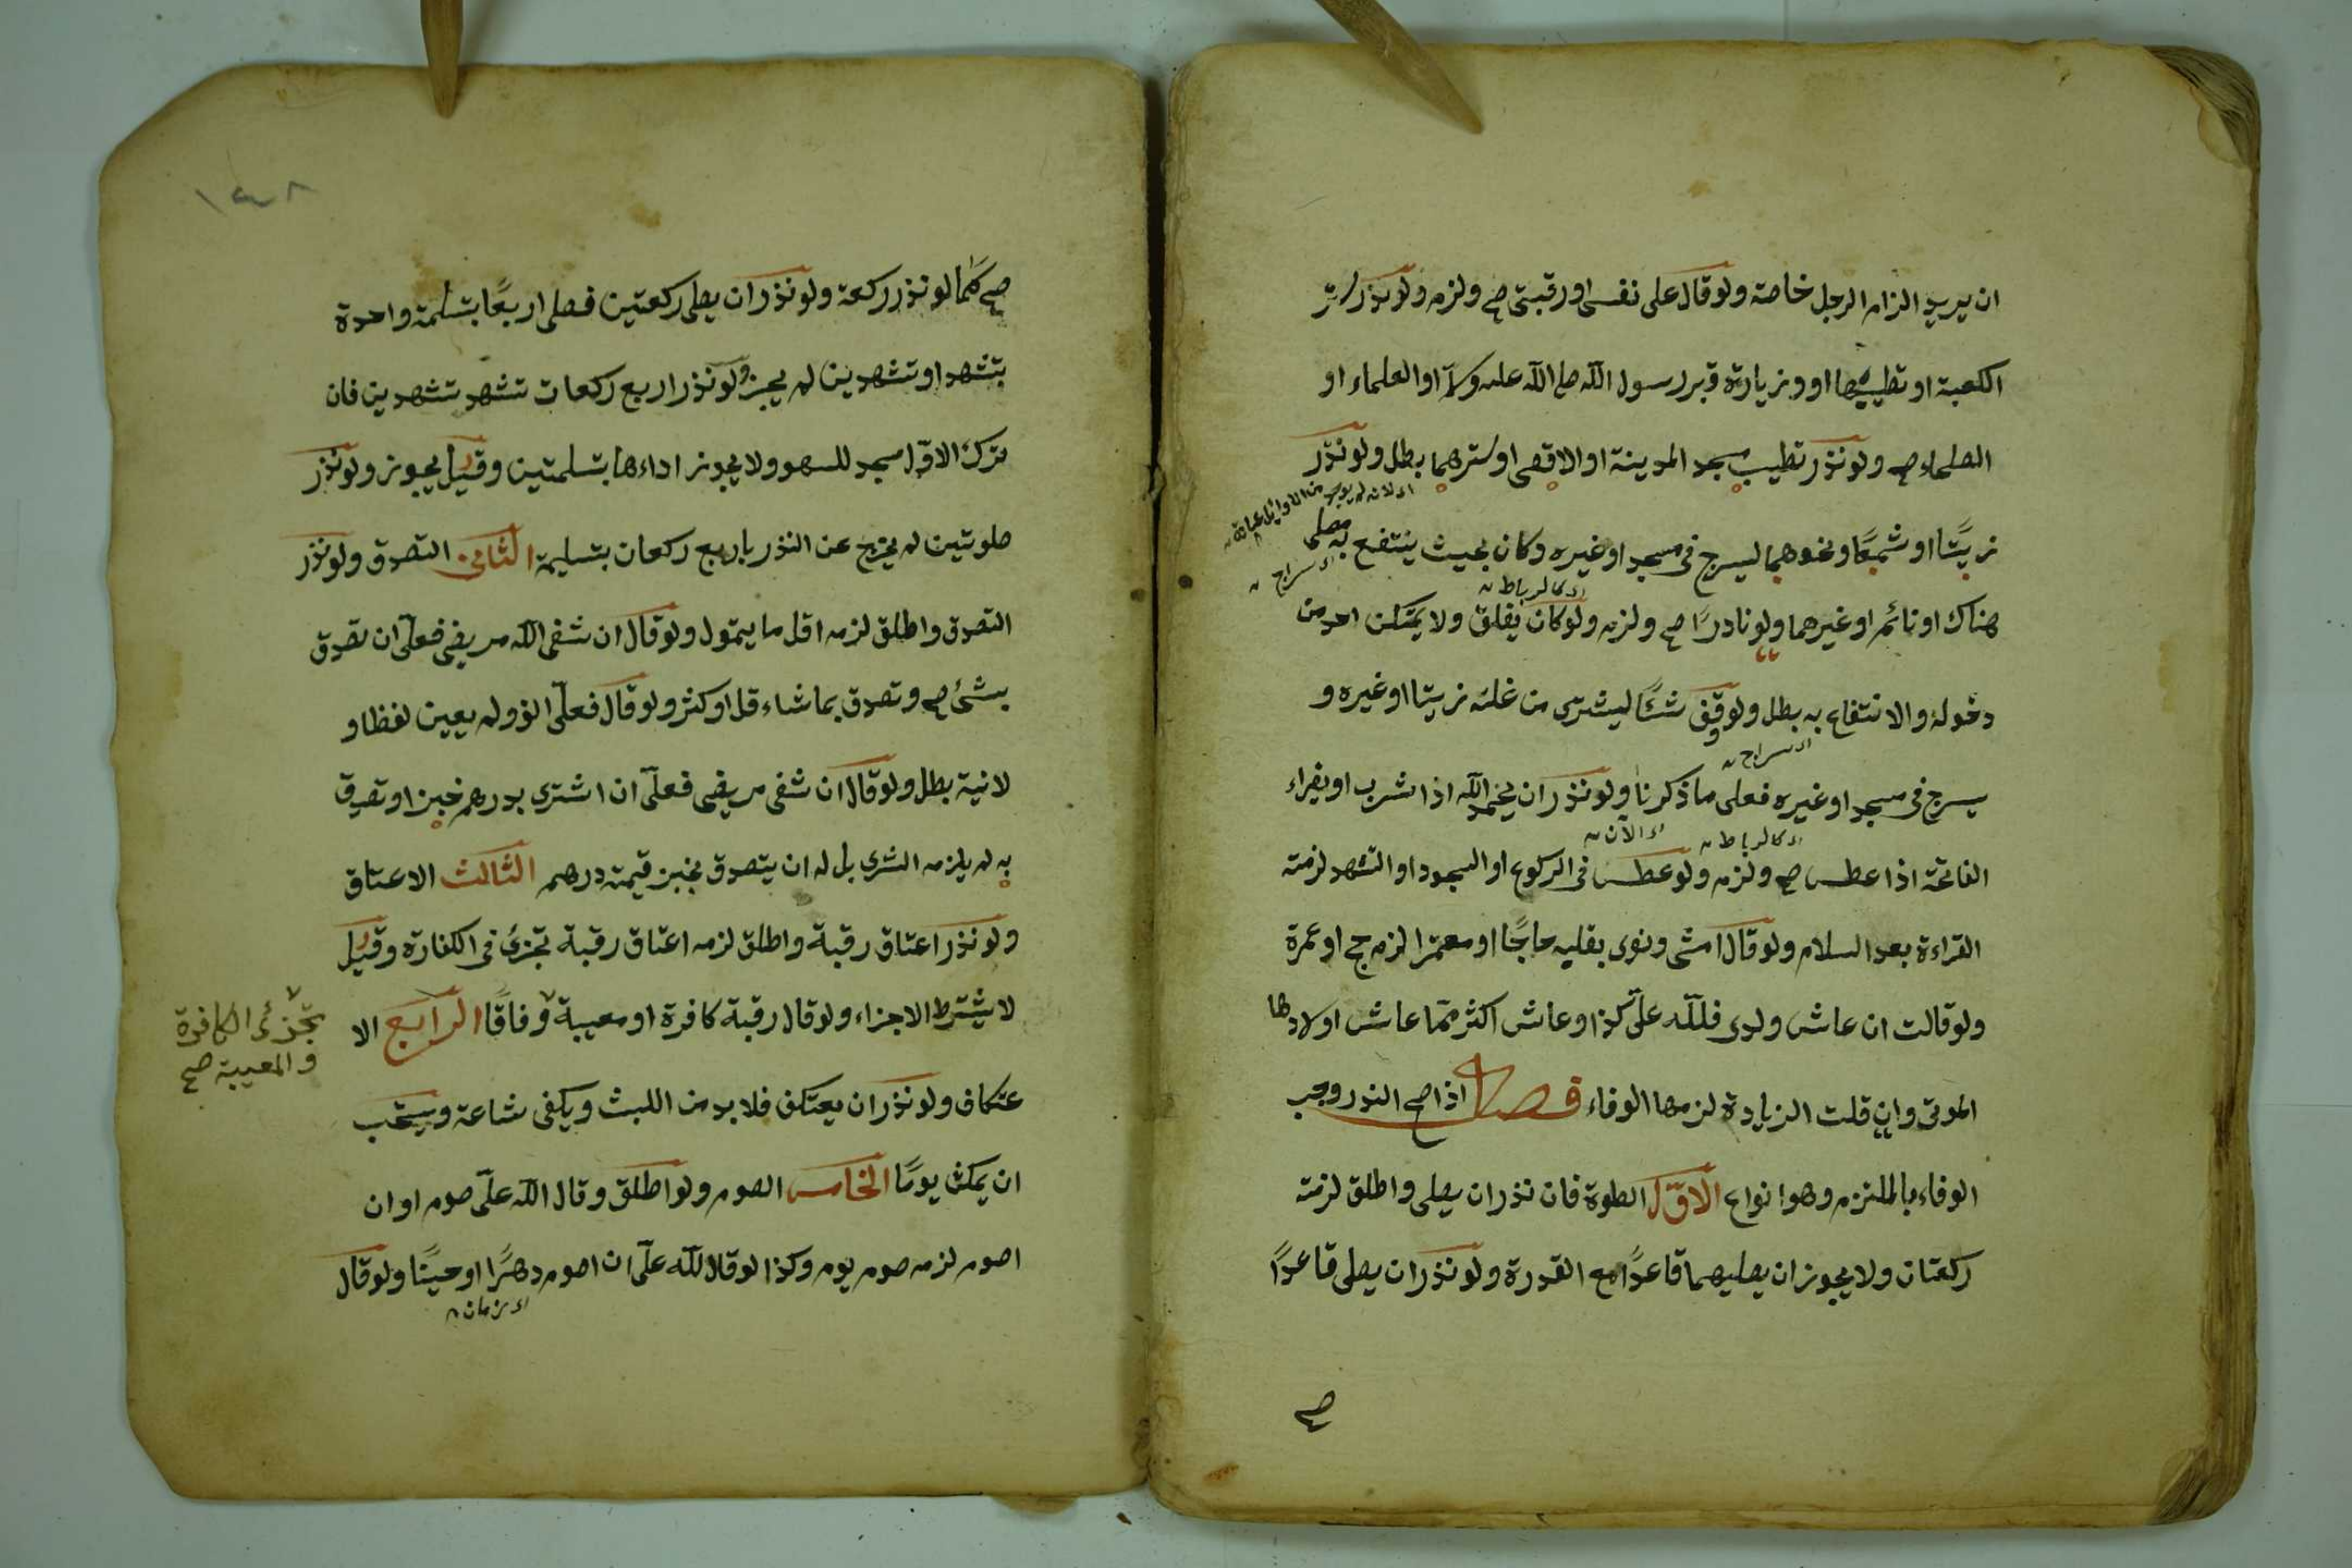 ان يريد الزام الرجل خاصة ولو قال على نفسى او رقبتى صح ولزم ولو نذر ستر
الكعبة او تطييبها او وزيارة قبر رسول الله صلى الله عليه وسلم او العلماء او
الصلحاء صح ولو نذر تطييب مسجد المدينة او الاقصى او سترهما بطل ولو نذر
زيتًا او شمعًا ونحوهما ليسرج فى مسجد او غيره وكان بحيث ينتفع به مصلى
اى سراج
اى كالرباط
هناك او نائم او غيرهما ولو نادرًا صح ولزم ولو كان يغلق ولا يتمكن احد من
دخوله والانتفاع به بطل ولو وقف شيئًا ليشترى من غلته زيتا او غيره و
اى سراج
يسرج فى مسجد او غيره فعلى ما ذكرنا ولو نذر ان يحمد الله اذا شرب او يقراء
اى كالرباط
اى الآن
الفاتحة اذا عطس صح ولزم ولو عطس فى الركوع او السجود او التشهد لزمته
القراءة بعد السلام ولو قال امشى ونوى بقلبه حاجًا او معتمرا لزم حج او عمرة
ولو قالت ان عاش ولدى فلله علىّ كذا وعاش اكثر ممّا عاش اولادها
الموتى وان قلت الزيادة لزمها الوفاء فصل اذا صح النذر وجب
الوفاء بالملتزم وهو انواع الاوّل الصلوة فان نذر ان يصلى واطلق لزمته
ركعتان ولا يجوز ان يصليهما قاعدًا مع القدرة ولو نذر ان يصلى قاعدًا
صح
١٣٨
صح كما لو نذر ركعة ولو نذر ان يصلى ركعتين فصلى اربعًا بتسليمة واحدة
بتشهد او تشهدين لم يجز ولو نذر اربع ركعات تشهد تشهدين فان
ترك الاوّل سجد للسهو ولا يجوز اداءها بتسلمتين وقيل يجوز ولو نذر
صلوتين لم يخرج عن النذر باربع ركعات بتسليمة الثانى التصدق ولو نذر
التصدق واطلق لزمه اقل ما يتمول ولو قال ان شفى الله مريضى فعلىّ ان تصدق
بشئ صح وتصدق بما شاء قل او كثر ولو قال فعلىّ الف ولم يعين لفظا و
لا نية بطل ولو قال ان شفى مريضى فعلىّ ان اشترى بدرهم خبزا وتصدق
به لم يلزمه الشرى بل له ان يتصدق بخبز قيمته درهم الثالث الاعتاق
ولو نذر اعتاق رقبة واطلق لزمه اعتاق رقبة تجزئ فى الكفارة وقيل
لا يشترط الاجزاء ولو قال رقبة كافرة او معيبة وفاقًا الرابع الا
تجزئ الكافرة
والمعيبة صح
عتكاف ولو نذر ان يعتكف فلا بد من اللبث ويكفى ساعة ويستحب
ان يمكث يومًا الخامس الصوم ولو اطلق وقال الله علىّ صوم او ان
اصوم لزمه صوم يوم وكذا لو قال لله علىّ ان اصوم دهرًا او حينًا ولو قال
اى زمان